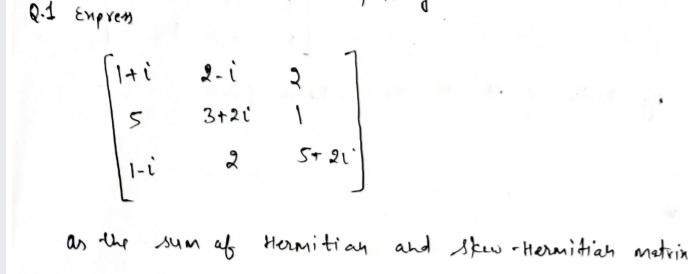 Q.1 Express
1+i 2-i 2
5 3+2i 1
1-i 2 5+2i
as the sum of Hermitian and skew-Hermitian matrix